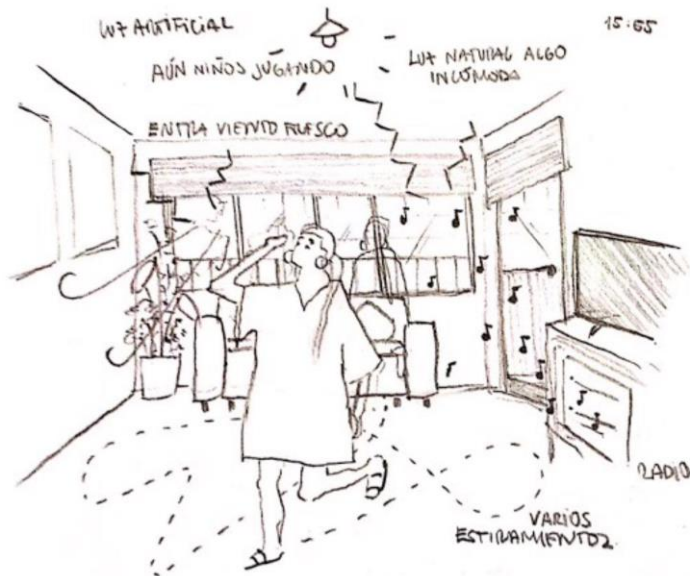 LUZ ARTIFICIAL
15:55
AÚN NIÑOS JUGANDO
LUZ NATURAL ALGO
INCÓMODA
ENTRA VIENTO FRESCO
RADIO
VARIOS
ESTIRAMIENTOS